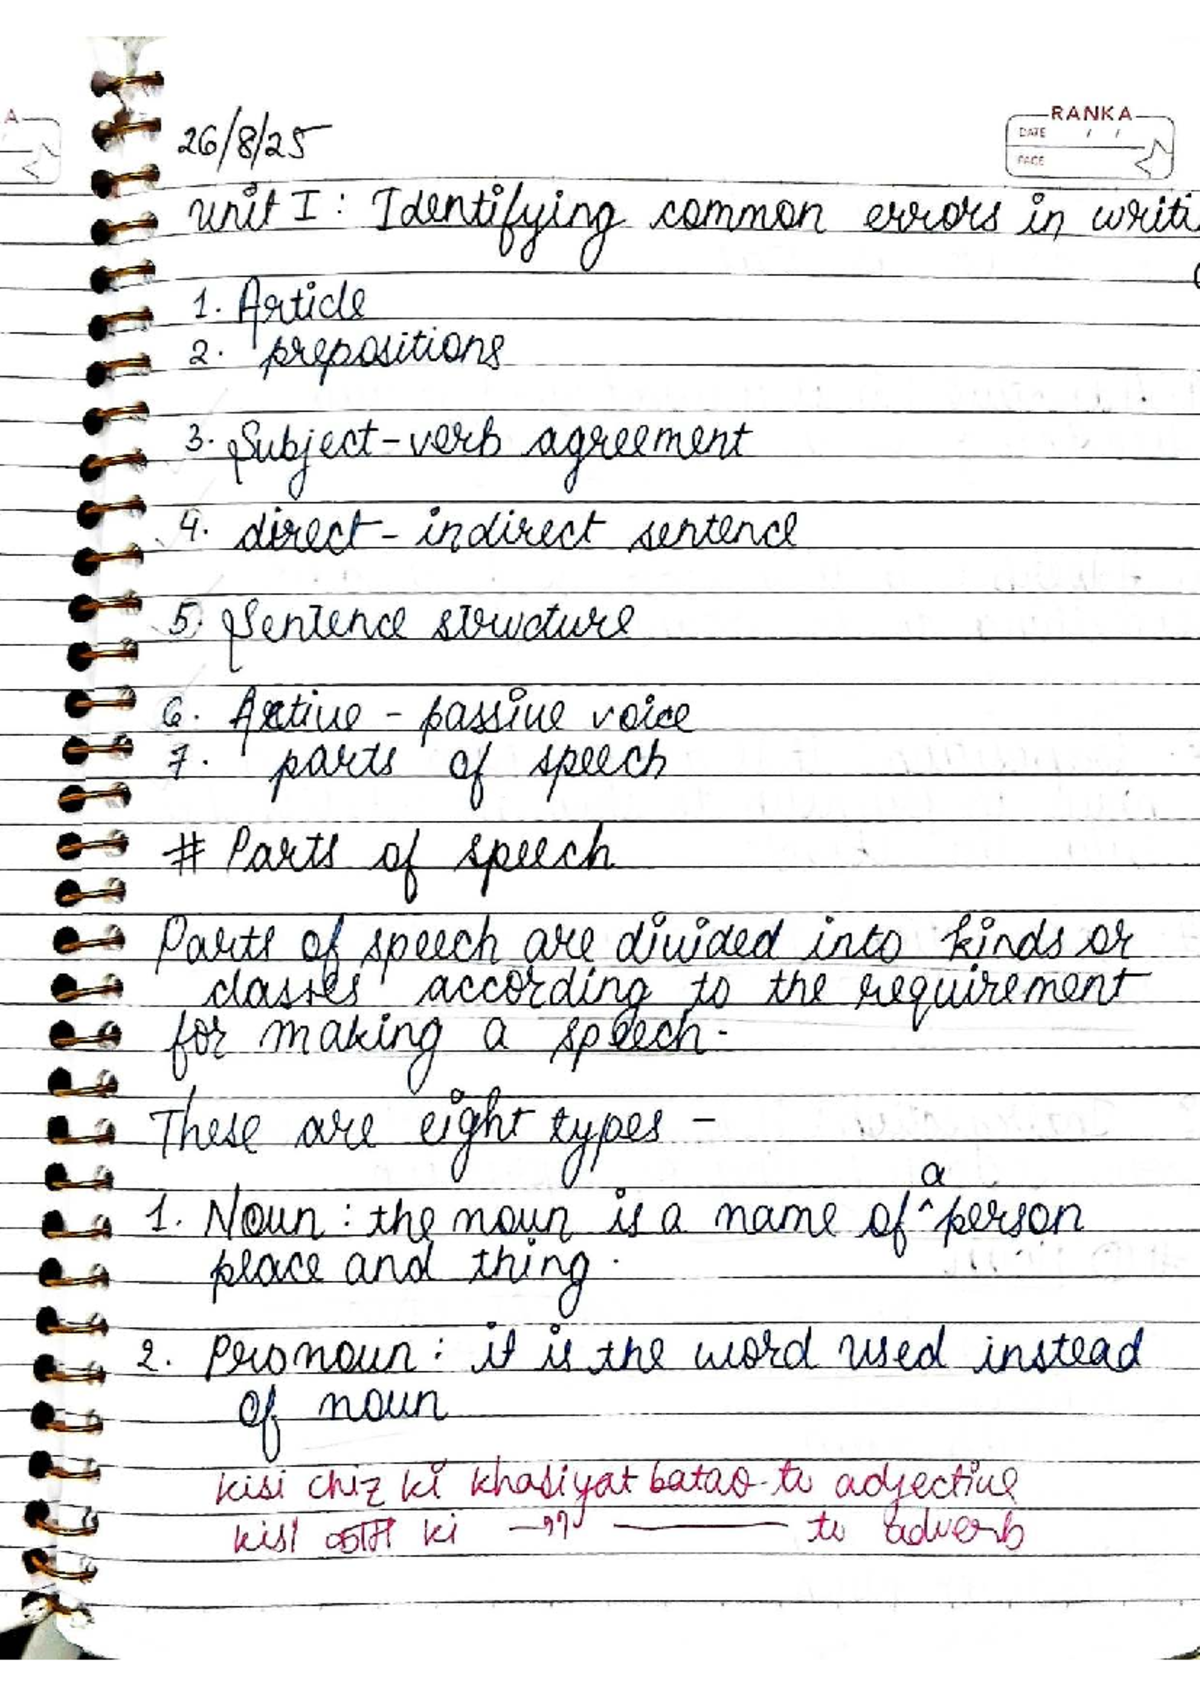 A
RANKA
DATE / /
PAGE
26/8/25
Unit I : Identifying common errors in writi
1. Article
2. prepositions
3. Subject-verb agreement
4. direct-indirect sentence
5. Sentence structure
6. Active - passive voice
7. parts of speech
# Parts of speech
Parts of speech are divided into kinds or
classes according to the requirement
for making a speech.
These are eight types -
a
1. Noun : the noun is a name of ^ person
place and thing.
2. Pronoun : it is the word used instead
of noun
kisi chiz ki khasiyat batao to adjective
kisi काम ki —"— to adverb